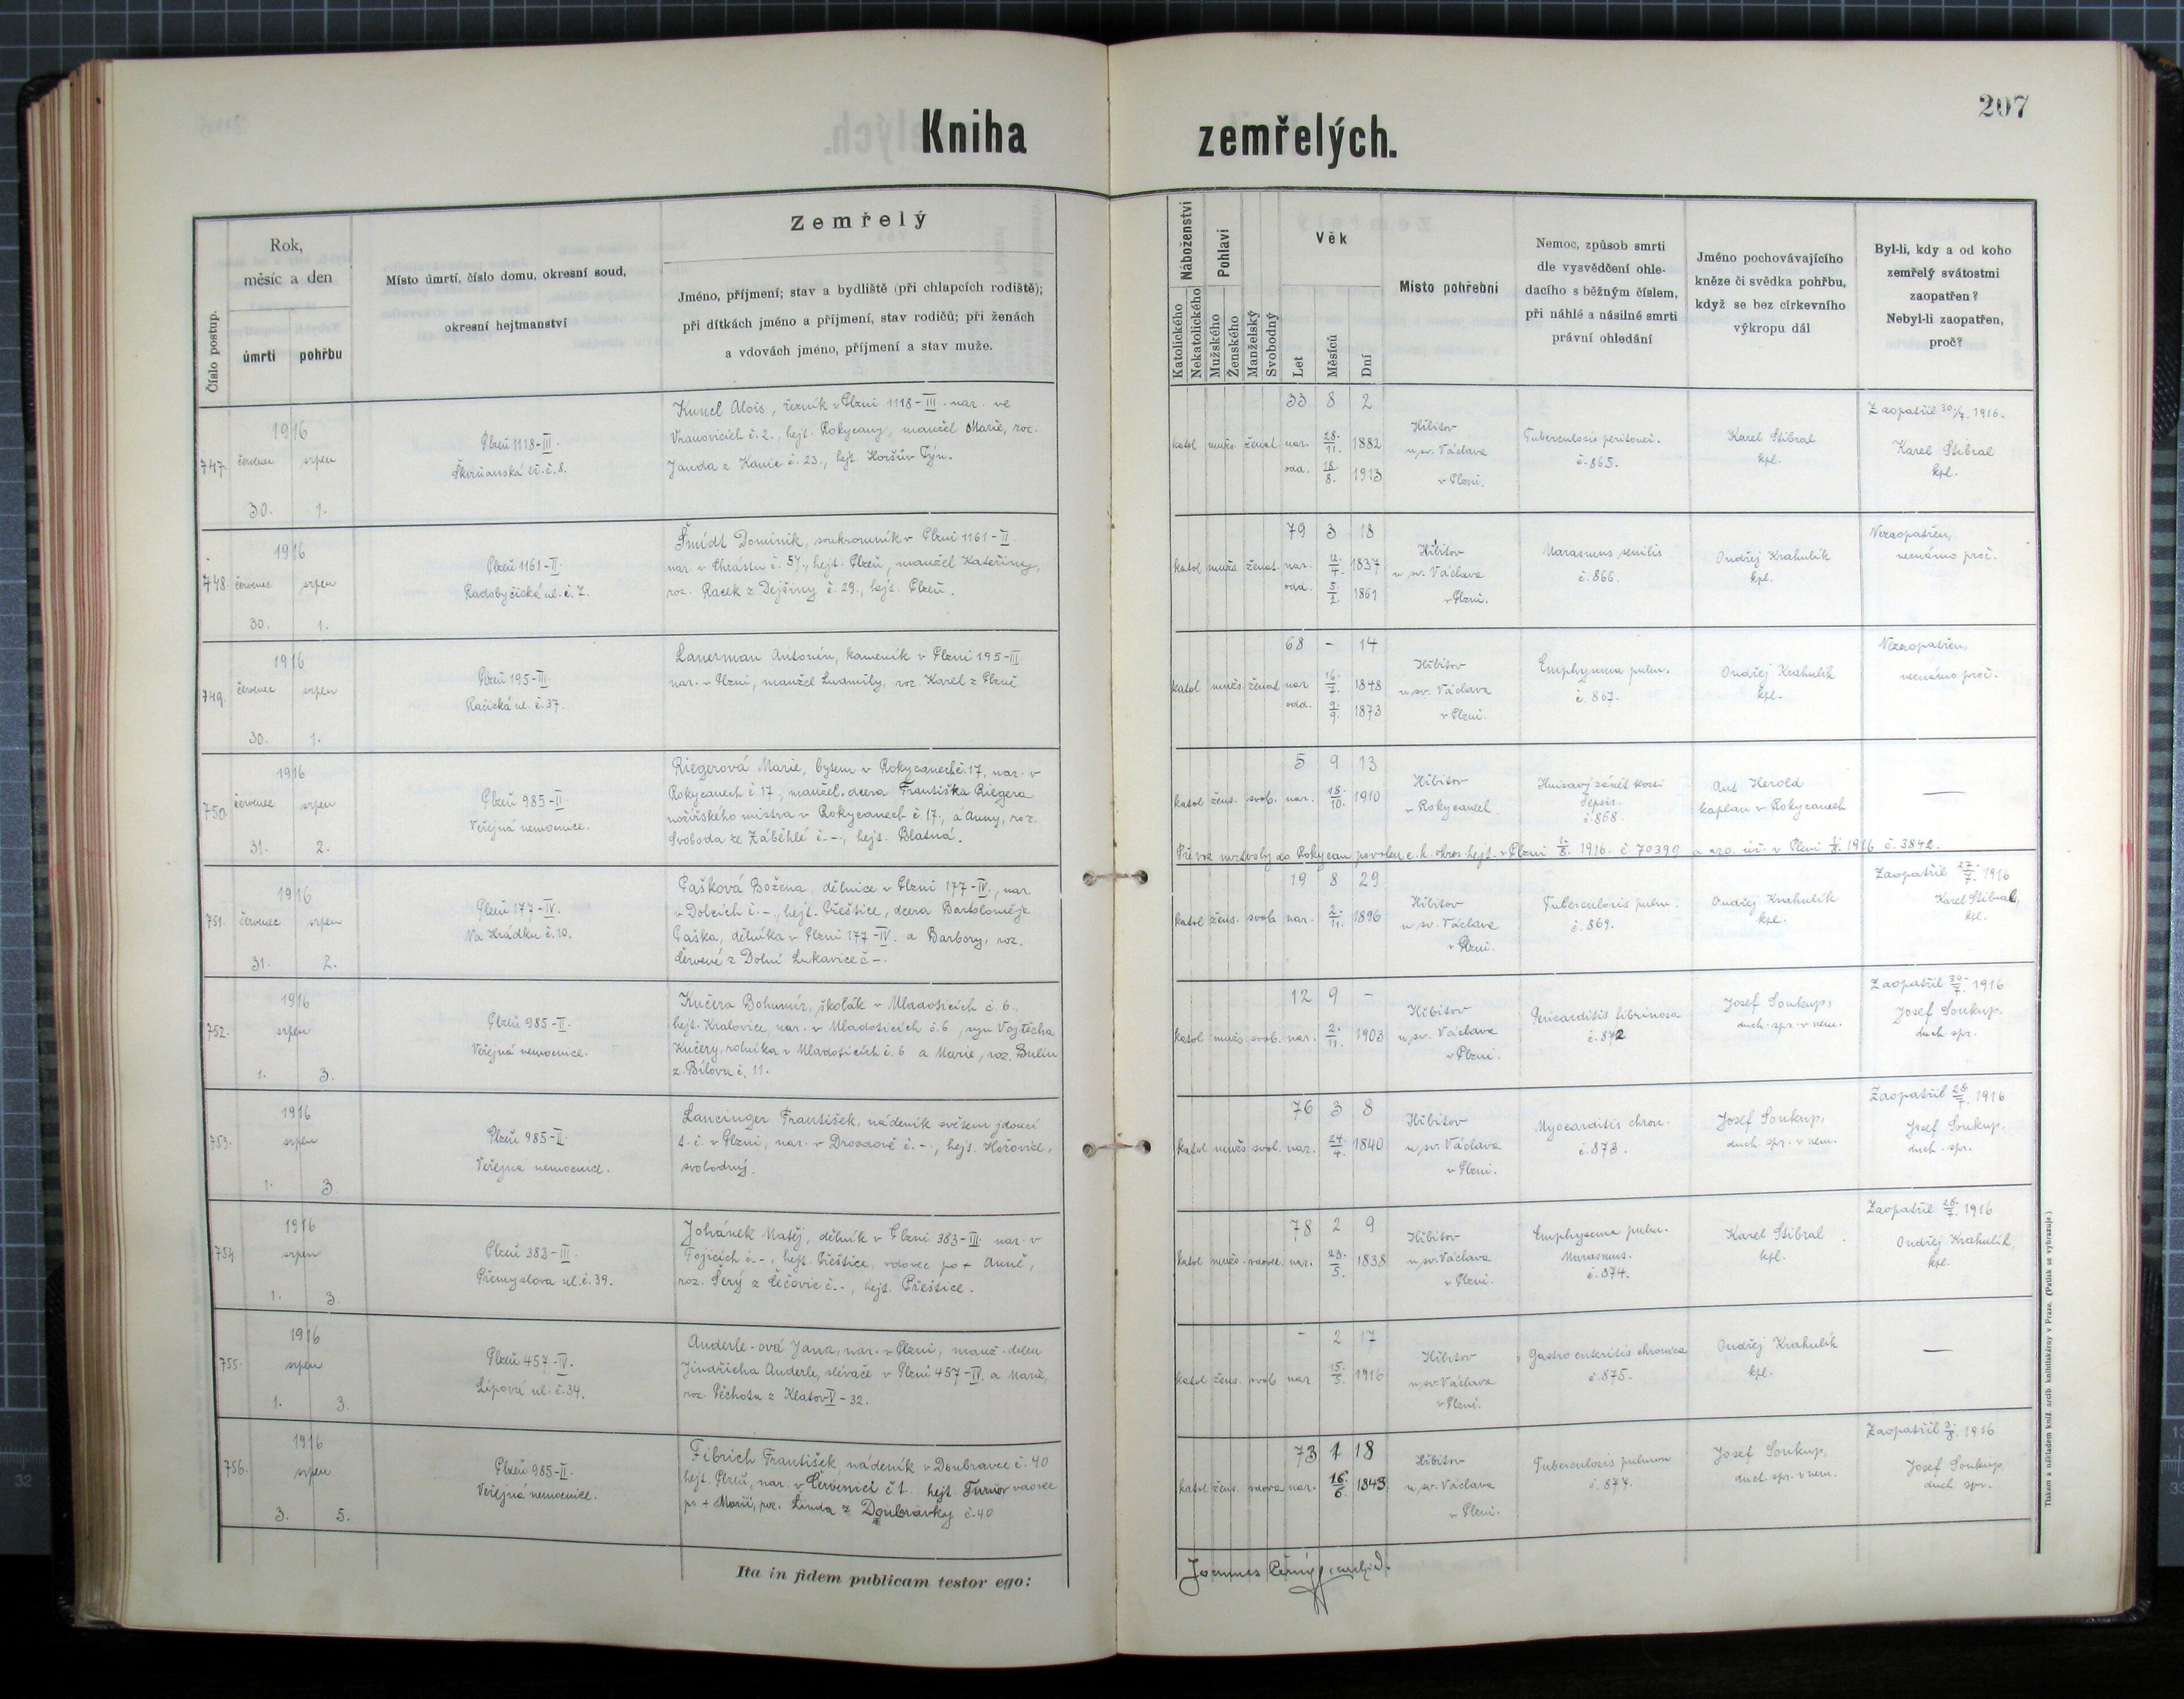 207
Kniha zemřelých.
Číslo postup.
Rok,
měsíc a den
úmrtí
pohřbu
Místo úmrtí, číslo domu, okresní soud,
okresní hejtmanství
Zemřelý
Jméno, příjmení; stav a bydliště (při chlapcích rodiště);
při dítkách jméno a příjmení, stav rodičů; při ženách
a vdovách jméno, příjmení a stav muže.
Náboženství
Katolického
Nekatolického
Pohlaví
Mužského
Ženského
Manželský
Svobodný
Věk
Let
Měsíců
Dní
Místo pohřební
Nemoc, způsob smrti
dle vysvědčení ohle-
dacího s běžným číslem,
při náhlé a násilné smrti
právní ohledání
Jméno pochovávajícího
kněze či svědka pohřbu,
když se bez církevního
výkropu dál
Byl-li, kdy a od koho
zemřelý svátostmi
zaopatřen?
Nebyl-li zaopatřen,
proč?
747.
1916
červenec srpen
30. 1.
Plzeň 1118-III.
Škvrňanská tř. č. 8.
Kuncl Alois, řezník v Plzni 1118-III. nar. ve
Vranovicích č. 2., hejt. Rokycany, manžel Marie, roz.
Janda z Kanic č. 23., hejt. Horšův Týn.
33 8 2
katol mužs. ženat nar. 28./11. 1882
odd. 18./8. 1913
Hřbitov
u sv. Václava
v Plzni.
Tuberculosis peritonei.
č. 865.
Karel Stibral
kpl.
Zaopatřil 30./7. 1916.
Karel Stibral
kpl.
748.
1916
červenec srpen
30. 1.
Plzeň 1161-II.
Radobyčická ul. č. 7.
Šmídl Dominik, soukromník v Plzni 1161-II.
nar. v Chrástu č. 57., hejt. Plzeň, manžel Kateřiny,
roz. Racek z Dejšiny č. 29., hejt. Plzeň.
79 3 18
katol mužs. ženat. nar. 12./4. 1837
odd. 5./2. 1861
Hřbitov
u sv. Václava
v Plzni.
Marasmus senilis
č. 866.
Ondřej Krahulík
kpl.
Nezaopatřen,
neznámo proč.
749.
1916
červenec srpen
30. 1.
Plzeň 195-III.
Plačická ul. č. 37.
Lauerman Antonín, kameník v Plzni 195-III.
nar. v Plzni, manžel Ludmily, roz. Karel z Plzně
68 - 14
katol mužs. ženat nar 16./7. 1848
odd. 9./9. 1873
Hřbitov
u sv. Václava
v Plzni.
Emphysema pulm.
č. 867.
Ondřej Krahulík
kpl.
Nezaopatřen,
neznámo proč.
750.
1916
červenec srpen
31. 2.
Plzeň 985-II.
Veřejná nemocnice.
Riegerová Marie, bytem v Rokycanech č. 17, nar. v
Rokycanech č 17., manžel. dcera Františka Riegera
nožířského mistra v Rokycanech č 17., a Anny, roz.
Svoboda ze Záběhlé č. -., hejt. Blatná.
5 9 13
katol žens. svob. nar. 18./10. 1910
Hřbitov
v Rokycanech
Hnisavý zánět kosti
Sepsis.
č. 868.
Ant Herold
kaplan v Rokycanech
—
Převoz mrtvoly do Rokycan povolen c. k. okres. hejt. v Plzni 1./8. 1916. č 70399 a zdr. úř. v Plzni 1./8. 1916 č. 3842.
751.
1916
červenec srpen
31. 2.
Plzeň 177-IV.
Na Hrádku č. 10.
Pašková Božena, dělnice v Plzni 177-IV., nar.
v Dolcích č. -., hejt. Přeštice, dcera Bartoloměje
Paška, dělníka v Plzni 177-IV. a Barbory, roz.
Červené z Dolní Lukavice č -.
19 8 29
katol žens. svob nar. 2./11. 1896
Hřbitov
u sv. Václava
v Plzni.
Tuberculosis pulm.
č. 869.
Ondřej Krahulík
kpl.
Zaopatřil 27./7. 1916
Karel Stibral,
kpl.
752.
1916
srpen
1. 3.
Plzeň 985-II.
Veřejná nemocnice.
Kučera Bohumír, školák v Mladoticích č. 6.,
hejt. Kralovice, nar. v Mladoticích č. 6., syn Vojtěcha
Kučery, rolníka v Mladoticích č. 6 a Marie, roz. Bulín
z Bílova č. 11.
12 9 -
katol mužs svob. nar. 2./11. 1903
Hřbitov
u sv. Václava
v Plzni.
Pericarditis fibrinosa
č. 872
Josef Soukup,
duch. spr. v nem.
Zaopatřil 30./7. 1916
Josef Soukup,
duch. spr.
753.
1916
srpen
1. 3.
Plzeň 985-II.
Veřejná nemocnice.
Lancinger František, nádeník světem jdoucí
t. č. v Plzni, nar. v Drozdově č. -., hejt. Hořovice,
svobodný.
76 3 8
katol mužs svob. nar. 24./4. 1840
Hřbitov
u sv. Václava
v Plzni.
Myocarditis chron.
č. 873.
Josef Soukup,
duch. spr. v nem.
Zaopatřil 26./7. 1916
Josef Soukup,
duch. spr.
754.
1916
srpen
1. 3.
Plzeň 383-III.
Přemyslova ul. č. 39.
Johánek Matěj, dělník v Plzni 383-III. nar. v
Tojicích č. -, hejt. Přeštice, vdovec po + Anně,
roz. Šerý z Čečovic č. -, hejt. Přeštice.
78 2 9
katol mužs. vdovec. nar. 23./5. 1838
Hřbitov
u sv. Václava
v Plzni.
Emphysema pulm.
Marasmus.
č. 874.
Karel Stibral
kpl.
Zaopatřil 28./7. 1916
Ondřej Krahulík,
kpl.
755.
1916
srpen
1. 3.
Plzeň 457-IV.
Lípová ul. č. 34.
Anderle-ová Jana, nar. v Plzni, manž. dcera
Jindřicha Anderle, slévače v Plzni 457-IV. a Marie,
roz. Pěchota z Klatov V-32.
- 2 17
katol žens. svob nar 15./5. 1916
Hřbitov
u sv. Václava
v Plzni.
Gastro enteritis chronica
č. 875.
Ondřej Krahulík
kpl.
—
756.
1916
srpen
3. 5.
Plzeň 985-II.
Veřejná nemocnice.
Fibrich František nádeník v Doubravce č. 40
hejt. Plzeň, nar. v č 1. hejt. vdovec
po + Marii, roz. Linda z Doubravky č. 40
73 1 18
katol žens. vdova nar. 16./6. 1843.
Hřbitov
u sv. Václava
v Plzni.
Tuberculosis pulmon
č. 877.
Josef Soukup,
duch. spr. v nem.
Zaopatřil 2./8. 1916
Josef Soukup,
duch. spr.
Ita in fidem publicam testor ego:
Joannes Černý, archid.
Tiskem a nákladem kníž. arcib. knihtiskárny v Praze. (Patisk se vyhrazuje.)